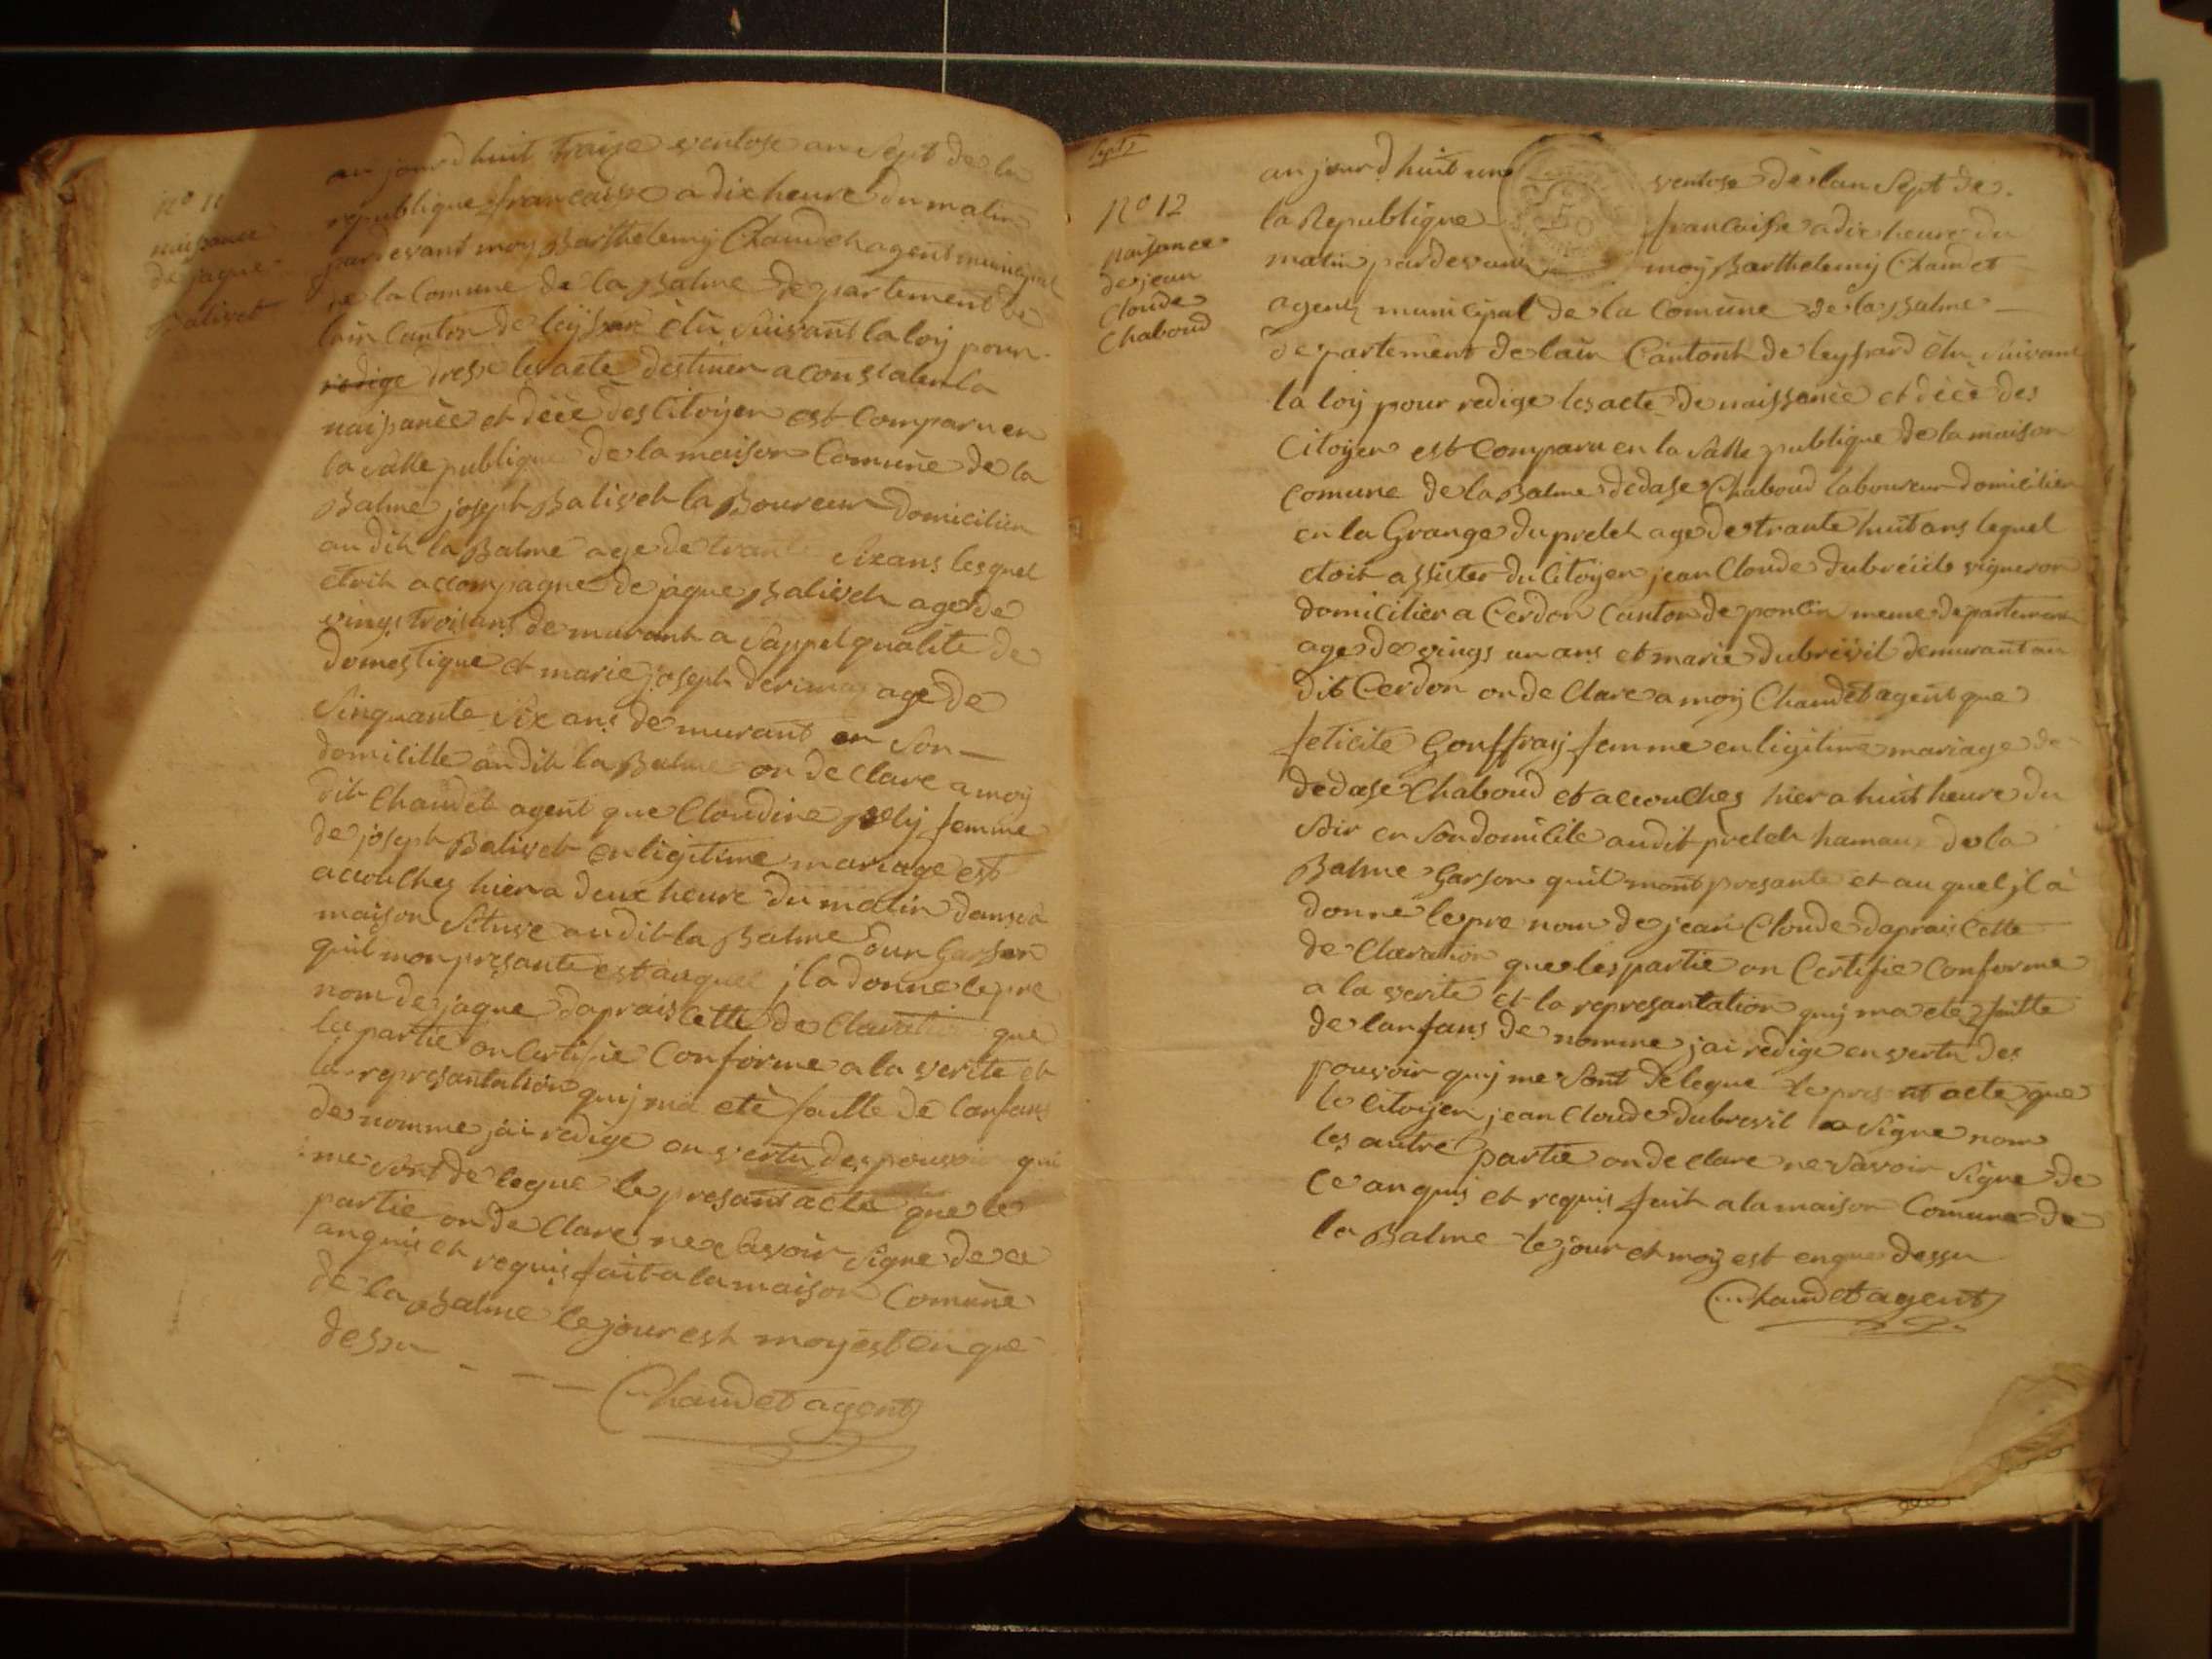 n° 11
naissance
de jaque
Balivet
au jourd huit traize ventose an sept de la
republique francaisse a dix heure du matin
pardevant moy Barthelemy Chaudet agent municipal
de la Comune de la Balme departement de
lain Canton de leyssar élu suivant la loy pour
redige dresse les acte destiner a constater la
naissance et décè des Citoyen est Comparu en
la salle publique de la maison Comune de la
Balme joseph Balivet la Boureur domicilier
au dit la Balme age de trante six ans lesquel
etoit accompagne de jaque Balivet age de
vingt trois ans demurant a qualite de
domestique et marie joseph age de
sinquante six ans demurant en son
domicille au dit la Balme on de clare a moy
dit Chaudet agent que Cloudine femme
de joseph Balivet en ligitime mariage est
accouchez hier a deux heure du matin dans sa
maison situse au dit la Balme dun Garson
quil mon presante est auquel jl a donne le pre
nom de jaque daprais cette de Claration que
les partie on Certifie Conforme a la verite et
la represantation quij ma eté faitte de lanfans
de nomme jai redige en vertu des pouvoir qui
me sont de legue le presant acte que le
partie on de Clare ne savoir signe de ce
anquis et requis fait a la maison Comune
de la Balme le jour est moy est en que
dessu
Chaudet agent
sept
n° 12
naisance
de jean
Cloude
Chaboud
au jourd huit ventose de lan sept de
la Republique francaisse a dix heure du
matin pardevant moy Barthelemy Chaudet
agent municipal de la Comune de la Balme
departement de lain Cantont de leyssard élu suivant
la loy pour redige les acte de naissance et décè des
Citoyen est Comparu en la salle publique de la maison
Comune de la Balme dedase Chaboud laboureur domicilier
en la Grange du prelet age de trante huit ans lequel
etoit assister du Citoyen jean Cloude vigneron
domicilier a Cerdon Canton de poncin meme departement
age de vings un ans et marie dubrevil demurant au
dit Cerdon on de Clare a moy Chaudet agent que
felicite Gouffray femme en ligitime mariage de
dedase Chaboud et accouchez hier a huit heure du
soir en son domicile au dit prelet hamau de la
Balme Garson quil mont presante et au quel jl a
donne le pre nom de jean Cloude daprais Cette
de Claration que les partie on Certifie Conforme
a la verite et la represantation quij ma ete faitte
de lanfans de nomme jai redige en vertu des
pouvoir quij me sont delegue le presant acte que
le Citoyen jean Cloude dubrevil a signe nom
les autre partie on de clare ne savoir signe de
Ce anquis et requis fait a la maison Comune de
la Balme le jour et moy est en que dessu
Chaudet agent